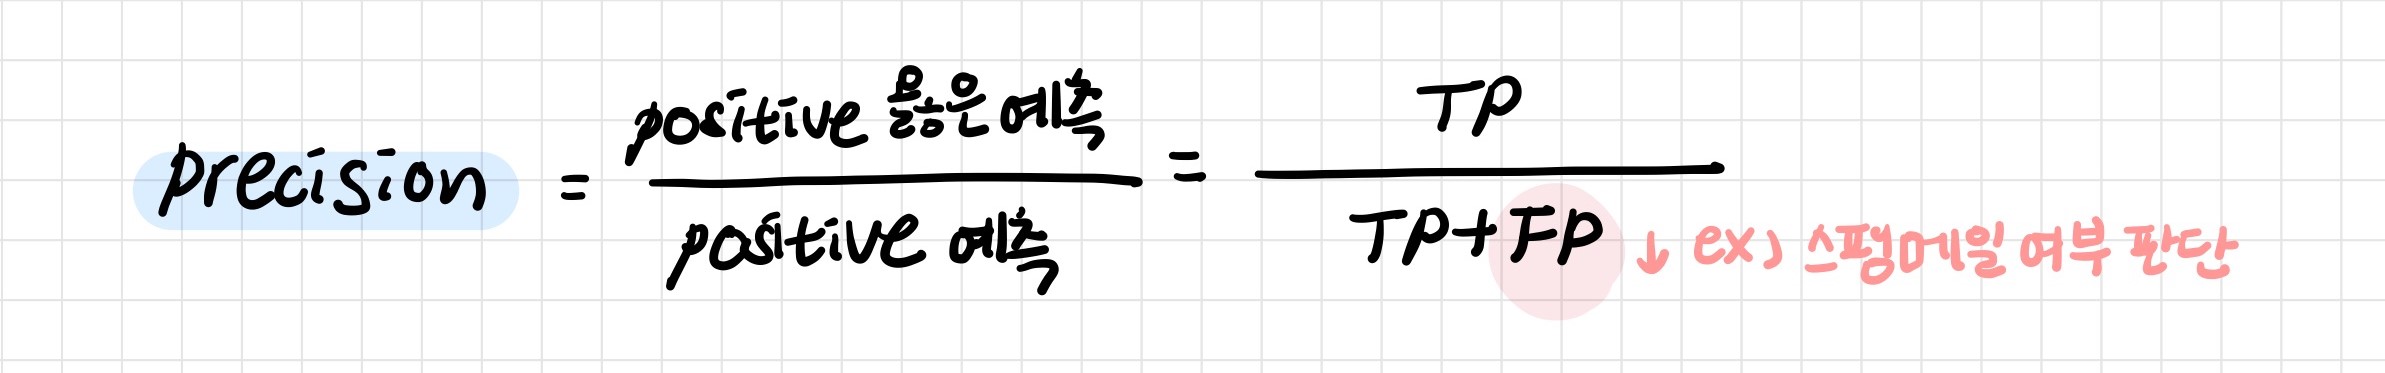 precision = positive 옳은 예측 / positive 예측 = TP / TP+FP ↓ ex) 스팸메일 여부 판단